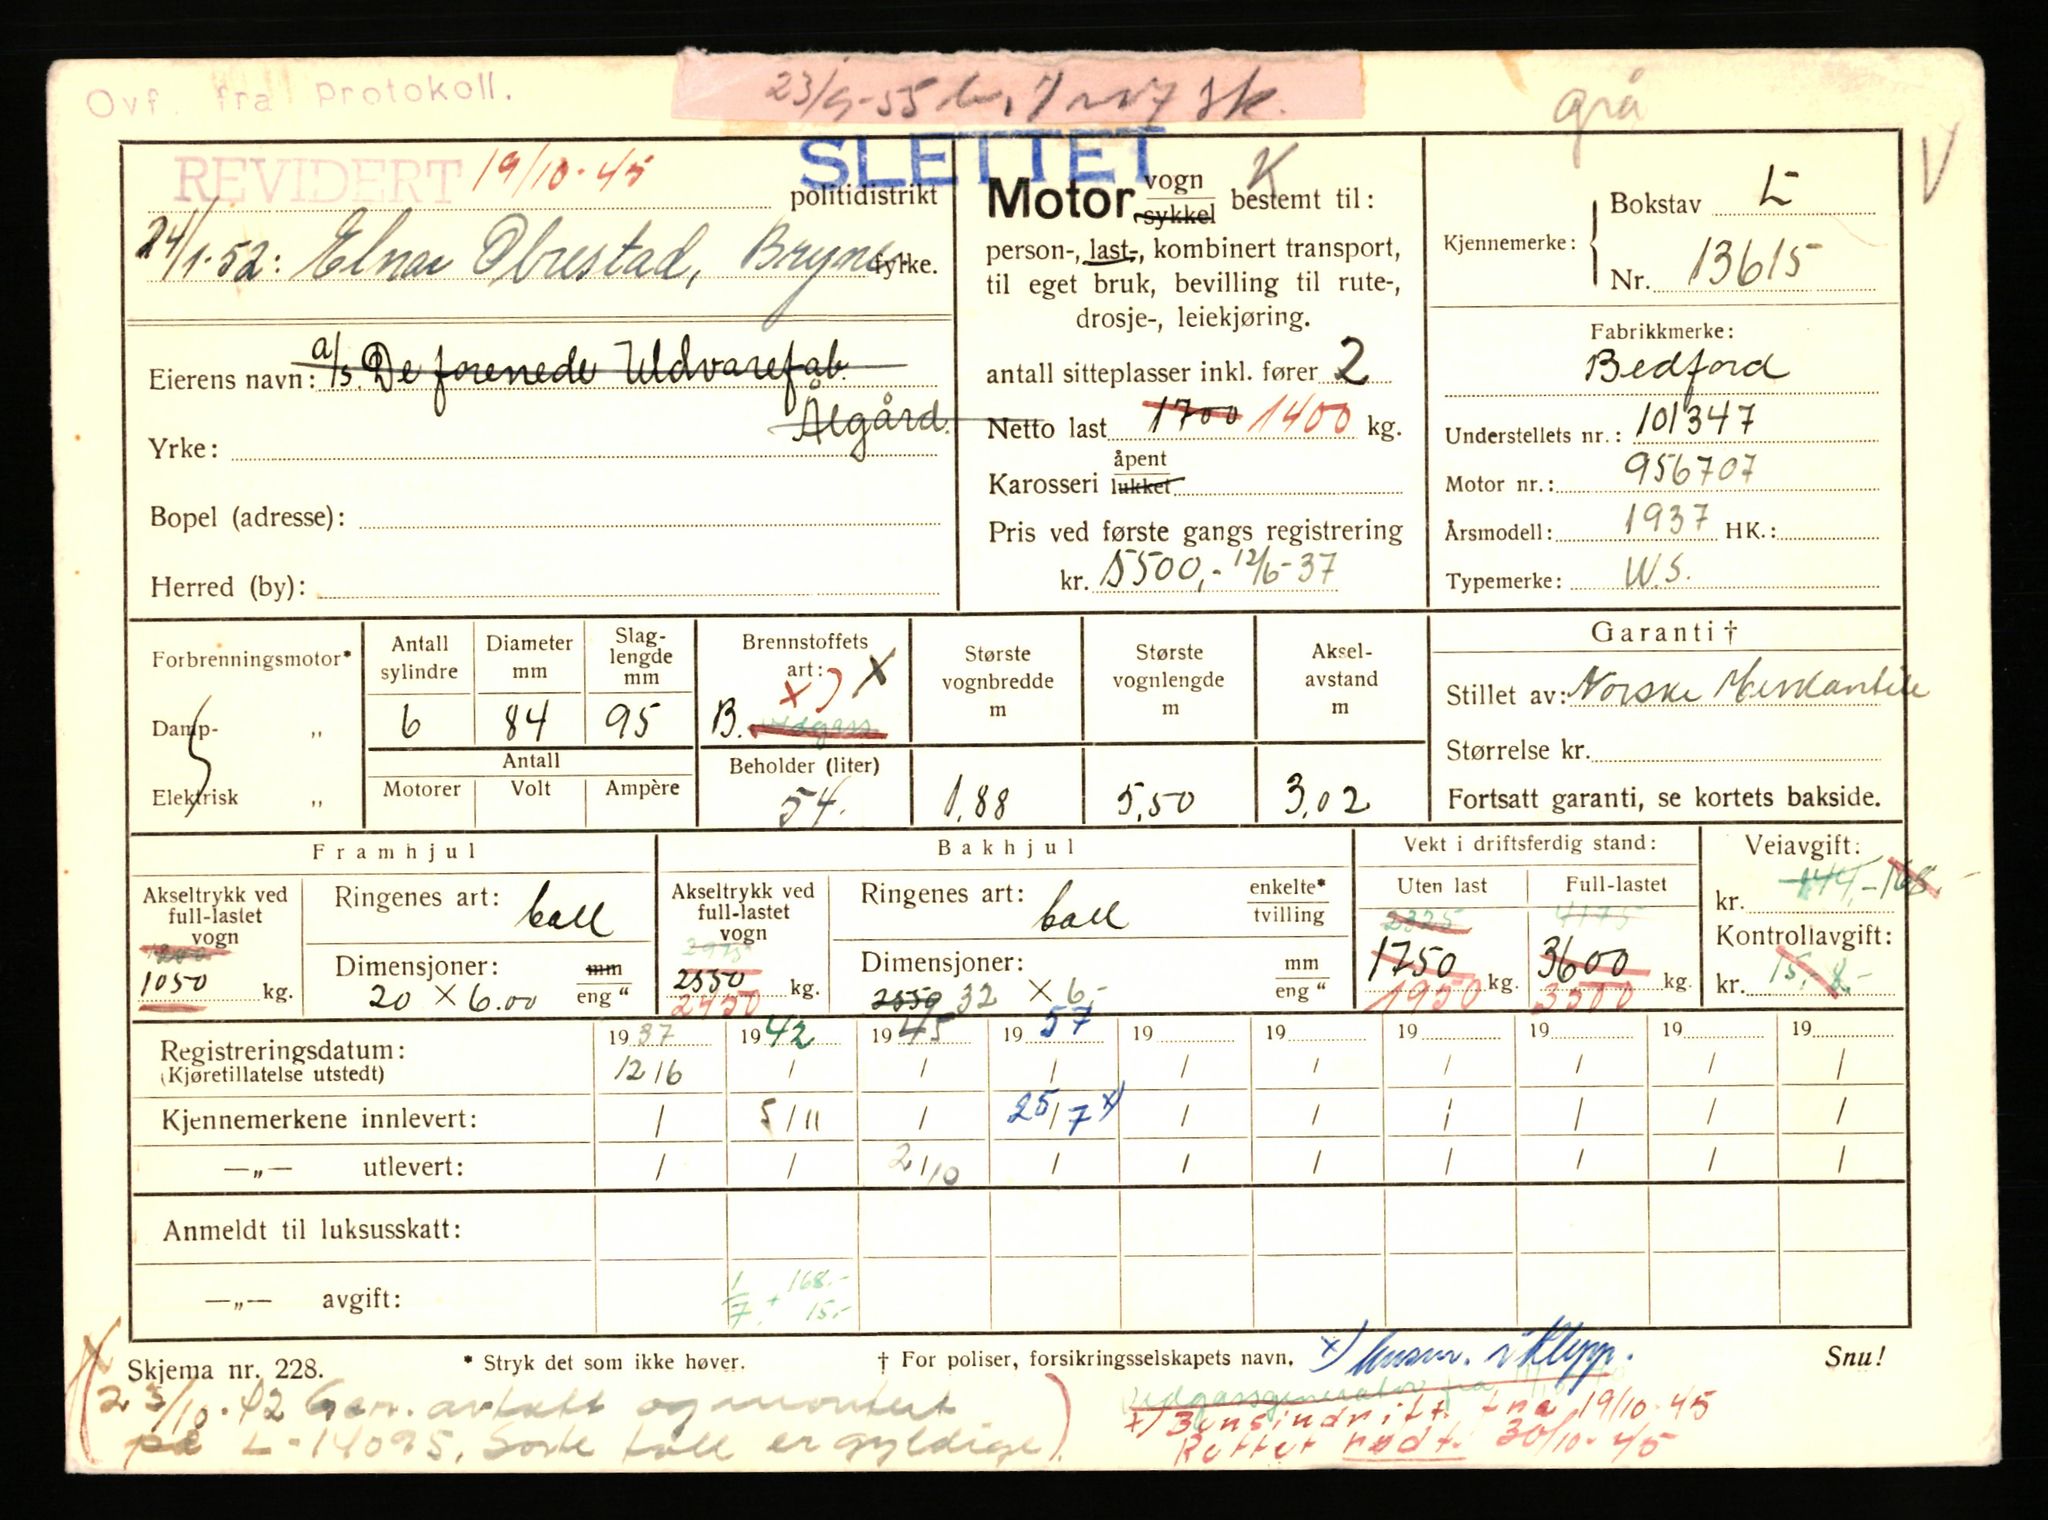 Ovf. fra Protokoll.
23/9-55
grå
V
SLETTET
REVIDERT 19/10-45
politidistrikt
24/1-52: Elnar Obrestad, Bryne
fylke.
Eierens navn: a/s. De forenede Uldvarefab.
Ålgård.
Yrke:
Bopel (adresse):
Herred (by):
K
Motor vogn/sykkel bestemt til:
person-, last-, kombinert transport,
til eget bruk, bevilling til rute-,
drosje-, leiekjøring.
antall sitteplasser inkl. fører 2
Netto last 1700 1400 kg.
Karosseri åpent/lukket
Pris ved første gangs registrering
kr. 5500,- 12/6-37
Kjennemerke:
Bokstav L
Nr. 13615
Fabrikkmerke:
Bedford
Understellets nr.: 101347
Motor nr.: 956707
Årsmodell: 1937 HK.:
Typemerke: W.S.
Forbrenningsmotor*
Damp- „
Elektrisk „
Antall sylindre
6
Diameter mm
84
Slag-lengde mm
95
Antall
Motorer Volt Ampère
Brennstoffets art:
x) X
B. vedgass
Beholder (liter)
54.
Største vognbredde m
1,88
Største vognlengde m
5,50
Aksel-avstand m
3,02
Garanti †
Stillet av: Norske Merkantile
Størrelse kr.
Fortsatt garanti, se kortets bakside.
Framhjul
Akseltrykk ved full-lastet vogn
1050 kg.
Ringenes art: ball
Dimensjoner: mm/eng "
20 x 6.00
Bakhjul
Akseltrykk ved full-lastet vogn
2975
2550 kg.
2450
Ringenes art: ball enkelte*/tvilling
Dimensjoner: mm/eng "
2550 32 x 6,-
Vekt i driftsferdig stand:
Uten last Full-lastet
2325 4175
1750 kg. 3600 kg.
1950 3500
Veiavgift:
kr. 144,- 168.-
Kontrollavgift:
kr. 15,- 8,-
Registreringsdatum: 1937 1942 1945 1957 19 19 19 19 19 19
(Kjøretillatelse utstedt) 12/6 / / / / / / / / /
Kjennemerkene innlevert: / 5/11 / 25/7 x) / / / / / /
—„— utlevert: / / 2/10 / / / / / / /
Anmeldt til luksusskatt:
—„— avgift: 1/7 + 168.-
15.-
Skjema nr. 228. * Stryk det som ikke høver. † For poliser, forsikringsselskapets navn. Snu!
x) i Klepp.
23/10-42 Gen. avtatt og montert
på L-14095. Sorte tall er gyldige)
vedgassgenerator fra
x) Bensindrift fra 19/10-45
Rettet rødt. 30/10-45